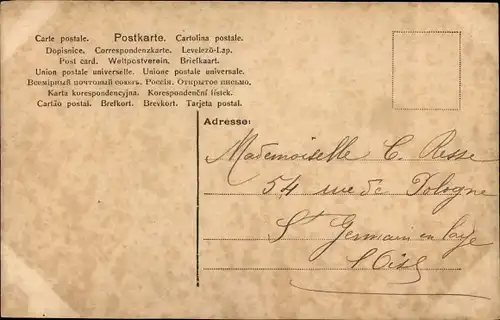 Carte postale. Postkarte. Cartolina postale.
Dopisnice. Correspondenzkarte. Levelező-Lap.
Post card. Weltpostverein. Briefkaart.
Union postale universelle. Unione postale universale.
Всемірный почтовый союзъ. Россія. Открытое письмо.
Karta korespondencyjna. Korespondenční lístek.
Cartão postal. Brefkort. Brevkort. Tarjeta postal.
Adresse:
Mademoiselle C. Resse
54 rue de Pologne
St Germain en laye
S'Oise